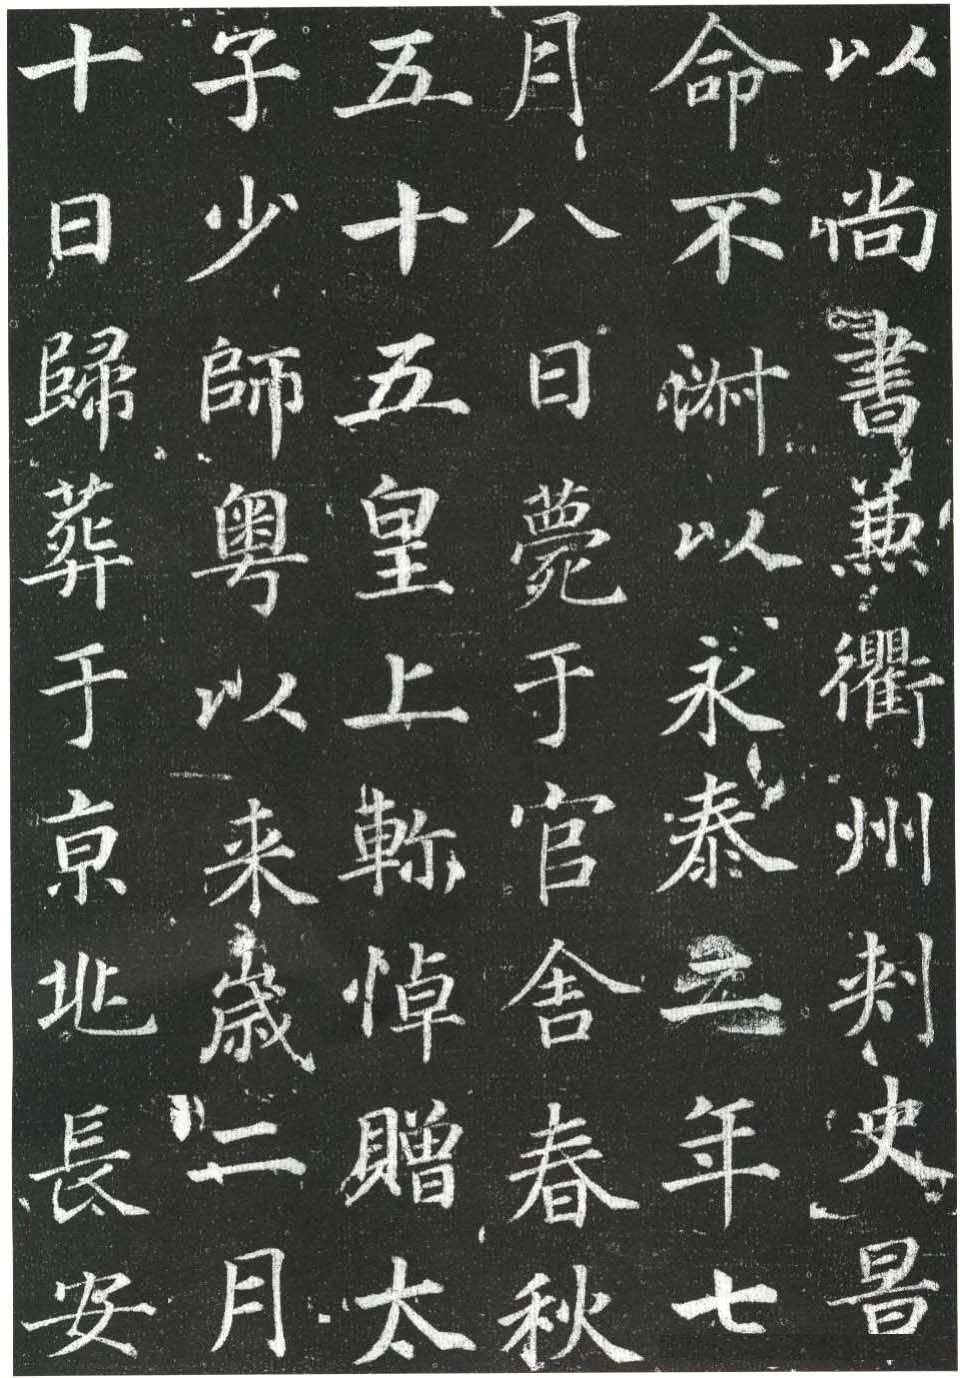 以尚書兼衢州刺史曷
命不淑以永泰二年七
月八日薨于官舍春秋
五十五皇上軫悼贈太
子少師粵以来歲二月
十日歸葬于京兆長安